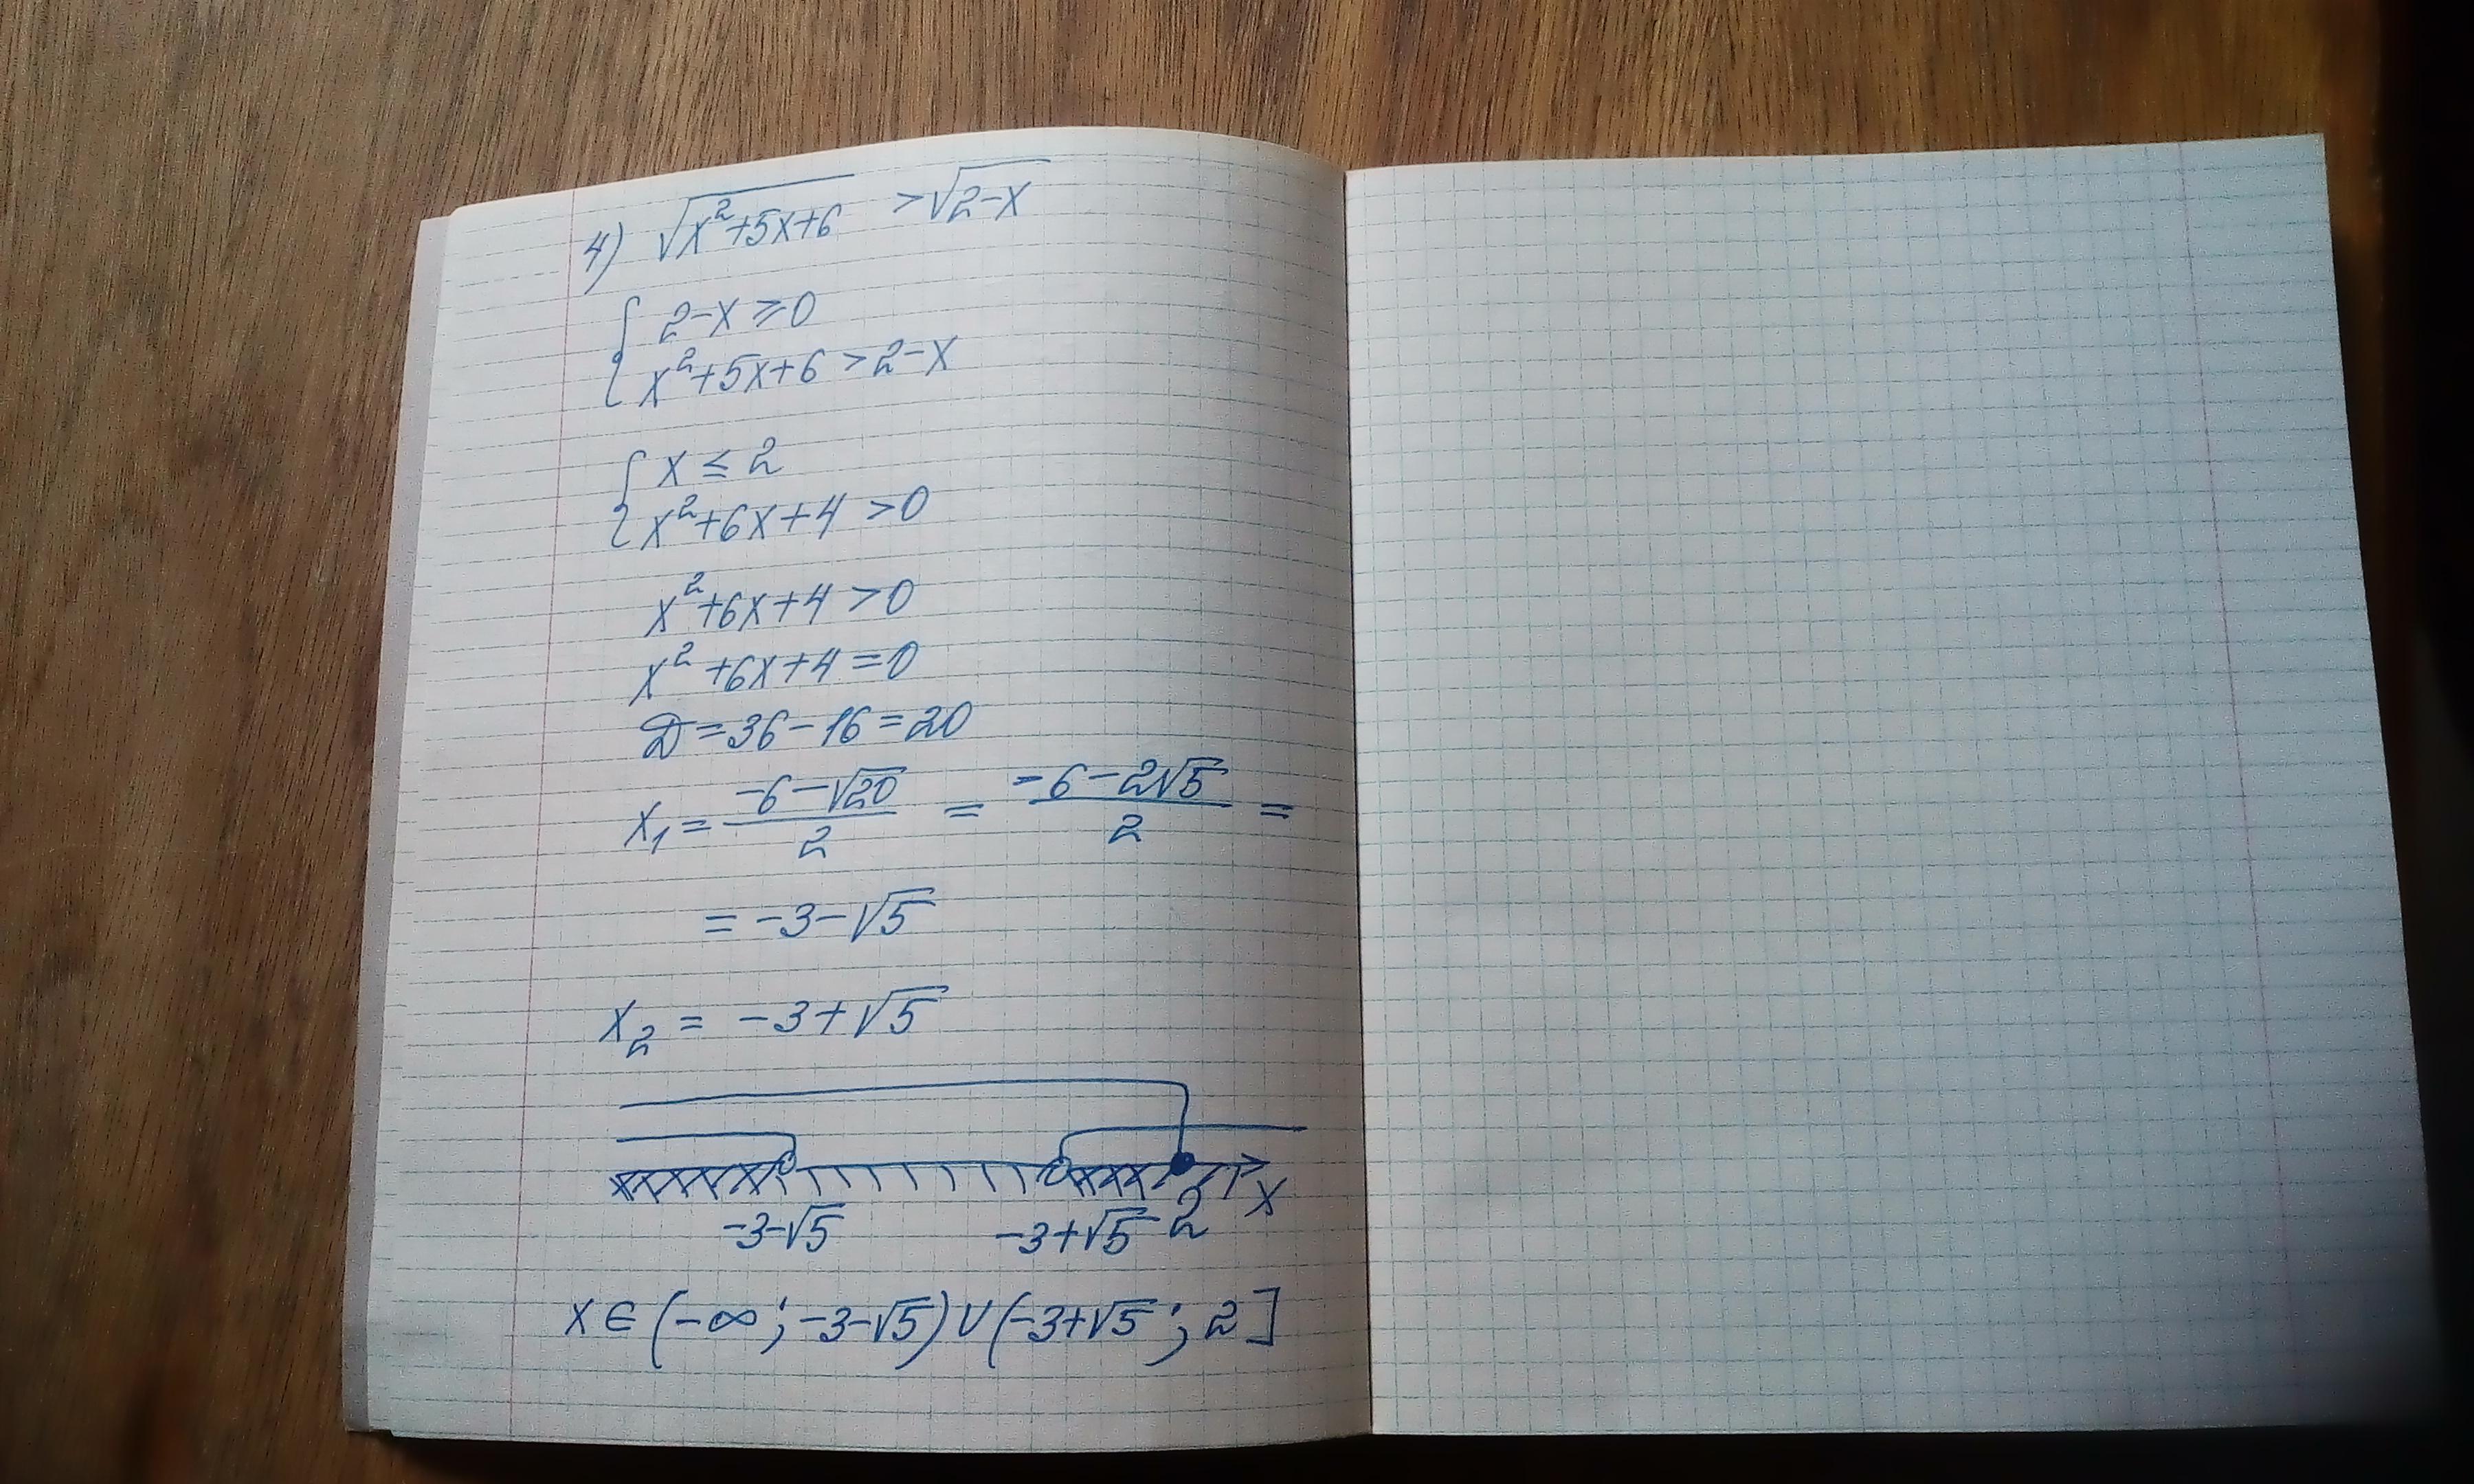 4) √(x²+5x+6) > √(2-x)
{ 2-x ≥ 0
x²+5x+6 > 2-x
{ x ≤ 2
x²+6x+4 > 0
x²+6x+4 > 0
x²+6x+4 = 0
D = 36 - 16 = 20
x₁ = (-6-√20)/2 = (-6-2√5)/2 =
= -3-√5
x₂ = -3+√5
-3-√5 -3+√5 2 x
x ∈ (-∞; -3-√5) ∪ (-3+√5; 2]